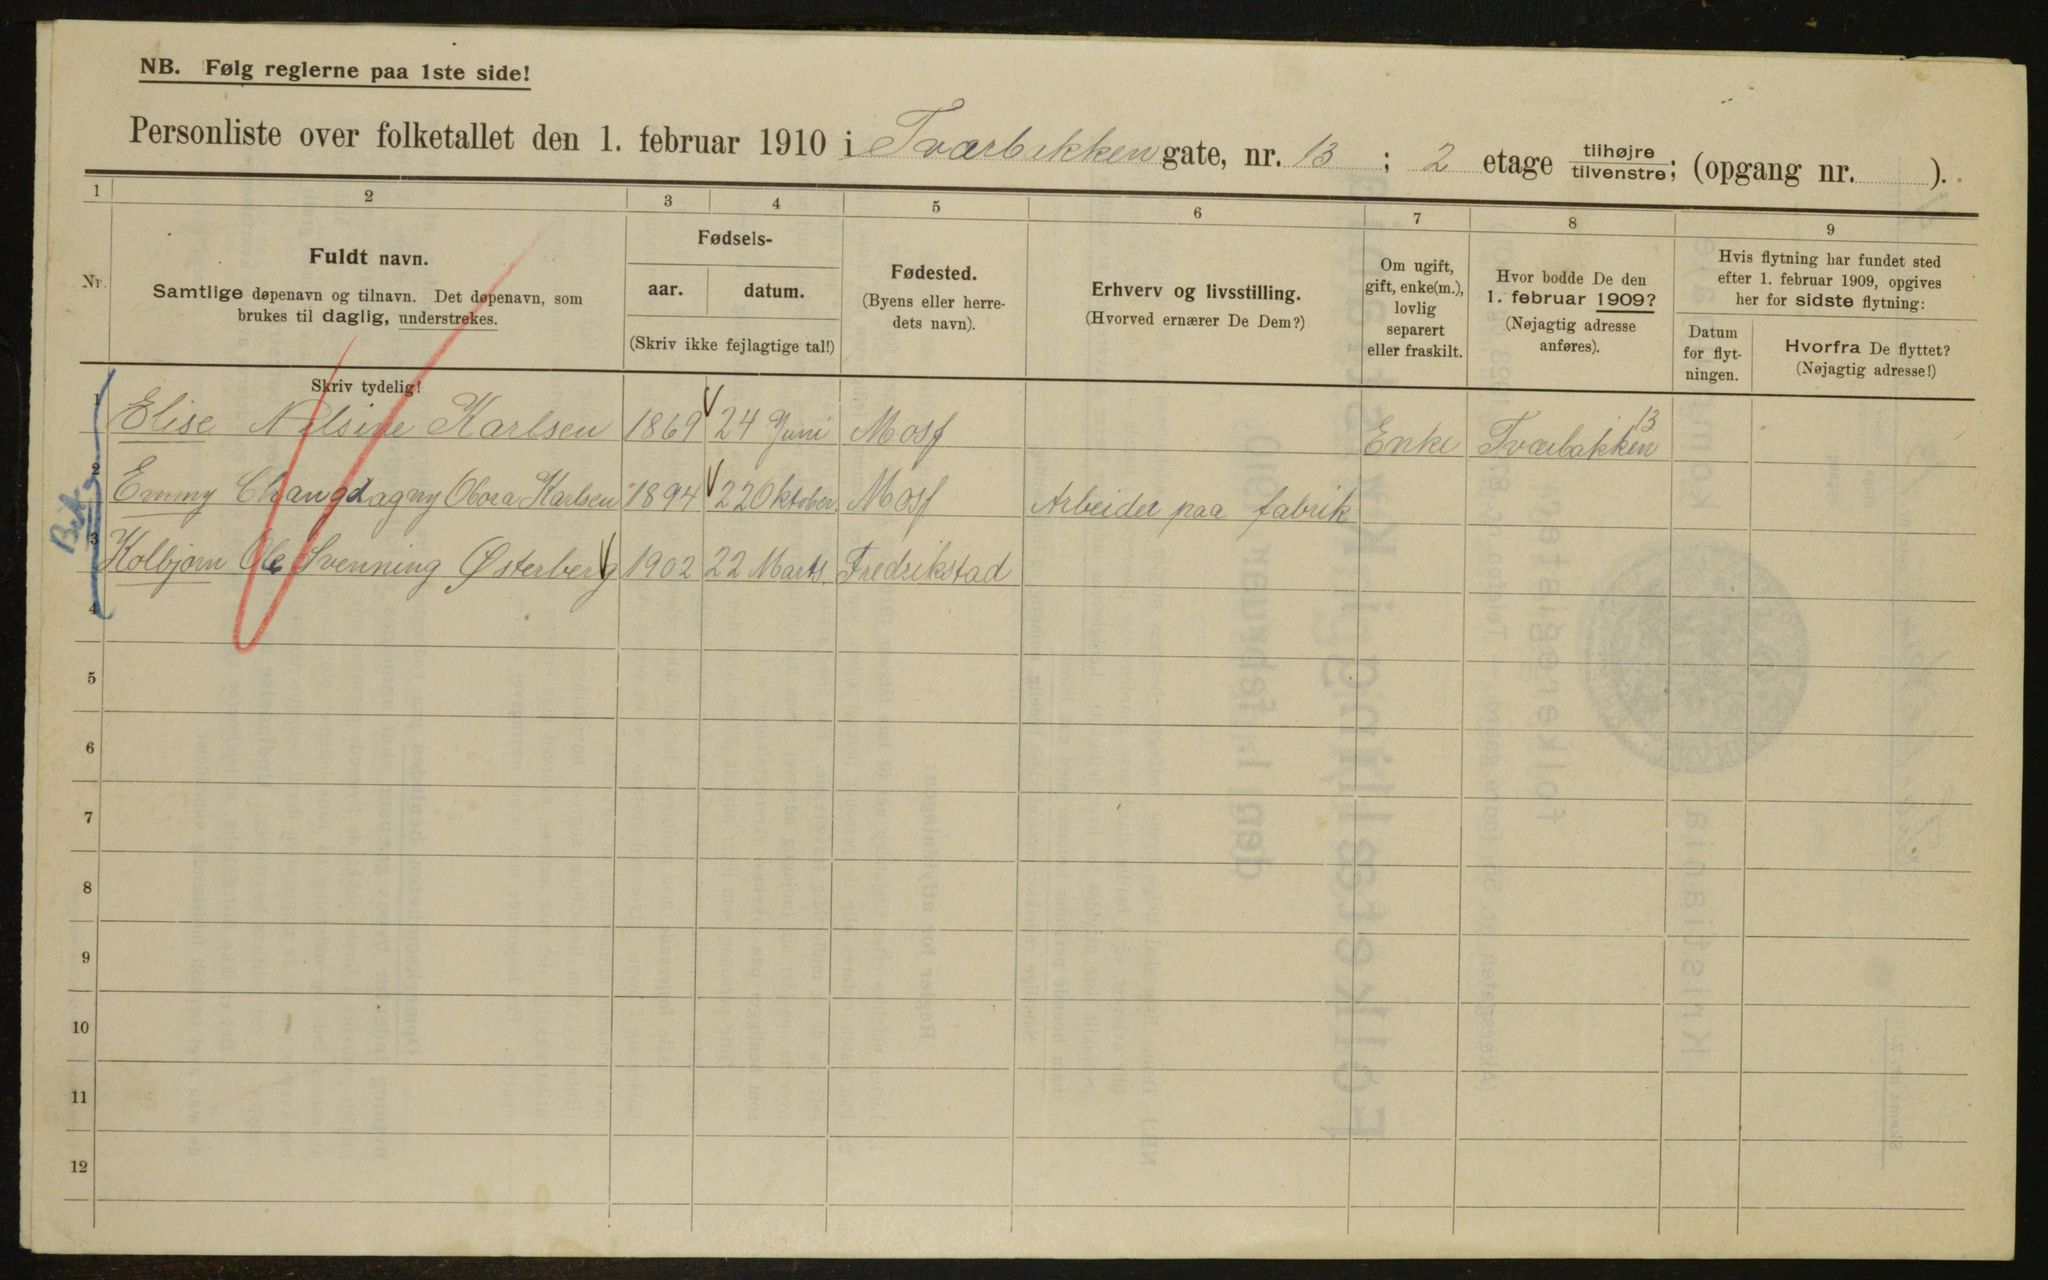 NB. Følg reglerne paa 1ste side!
Personliste over folketallet den 1. februar 1910 i Tværbakken gate, nr. 13 ; 2 etage tilhøjre/tilvenstre; (opgang nr. ).
1 2 3 4 5 6 7 8 9
Nr.
Fuldt navn.
Samtlige døpenavn og tilnavn. Det døpenavn, som
brukes til daglig, understrekes.
Skriv tydelig!
Fødsels-
aar. datum.
(Skriv ikke fejlagtige tal!)
Fødested.
(Byens eller herre-
dets navn).
Erhverv og livsstilling.
(Hvorved ernærer De Dem?)
Om ugift,
gift, enke(m.),
lovlig
separert
eller fraskilt.
Hvor bodde De den
1. februar 1909?
(Nøjagtig adresse
anføres).
Hvis flytning har fundet sted
efter 1. februar 1909, opgives
her for sidste flytning:
Datum
for flyt-
ningen.
Hvorfra De flyttet?
(Nøjagtig adresse!)
1 Elise Nilsine Karlsen 1869 24 Juni Moss Enke Tværbakken 13
2 Emmy Karlsen 1894 22 Oktober Moss Arbeider paa fabrik
3 Kolbjørn Ole Svenning Østerberg 1902 22 Marts. Fredrikstad
4
5
6
7
8
9
10
11
12